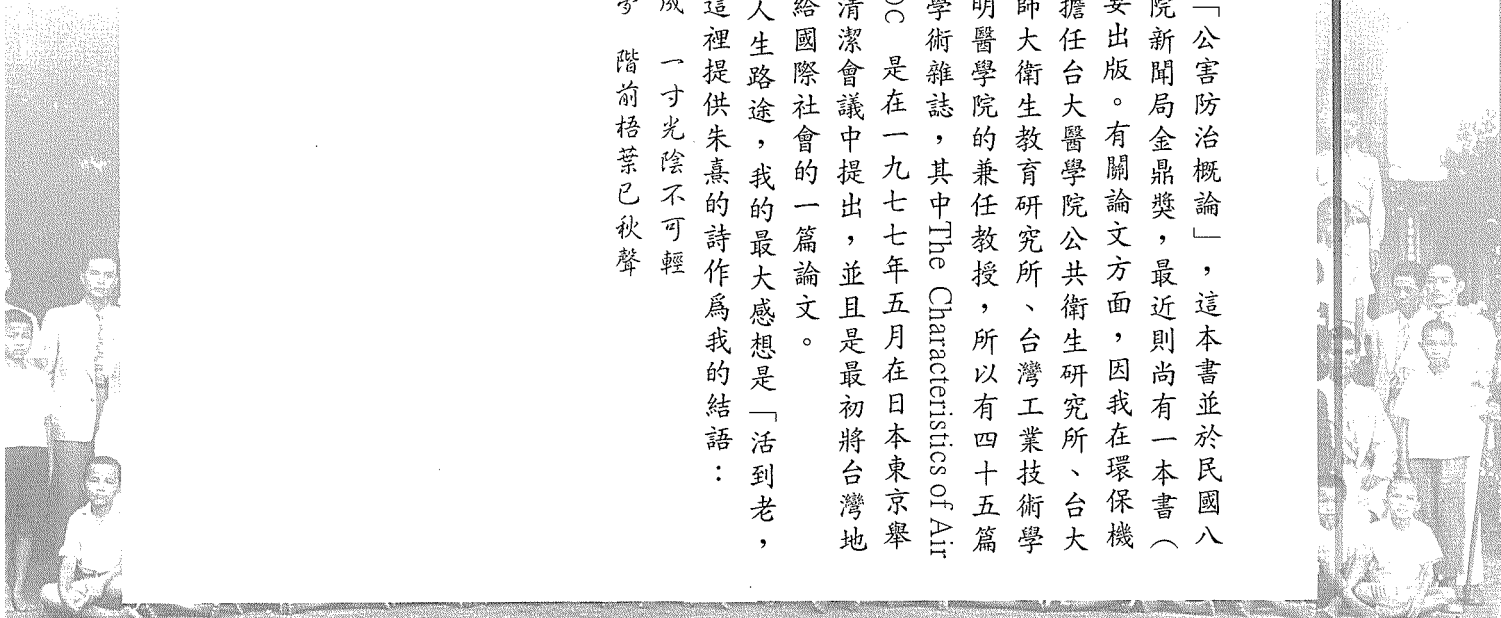 「公害防治概論」，這本書並於民國八
院新聞局金鼎獎，最近則尚有一本書（
妥出版。有關論文方面，因我在環保機
擔任台大醫學院公共衛生研究所、台大
師大衛生教育研究所、台灣工業技術學
明醫學院的兼任教授，所以有四十五篇
學術雜誌，其中The Characteristics of Air
OC 是在一九七七年五月在日本東京舉
清潔會議中提出，並且是最初將台灣地
給國際社會的一篇論文。
人生路途，我的最大感想是「活到老，
這裡提供朱熹的詩作爲我的結語：
成 一寸光陰不可輕
夢 階前梧葉已秋聲